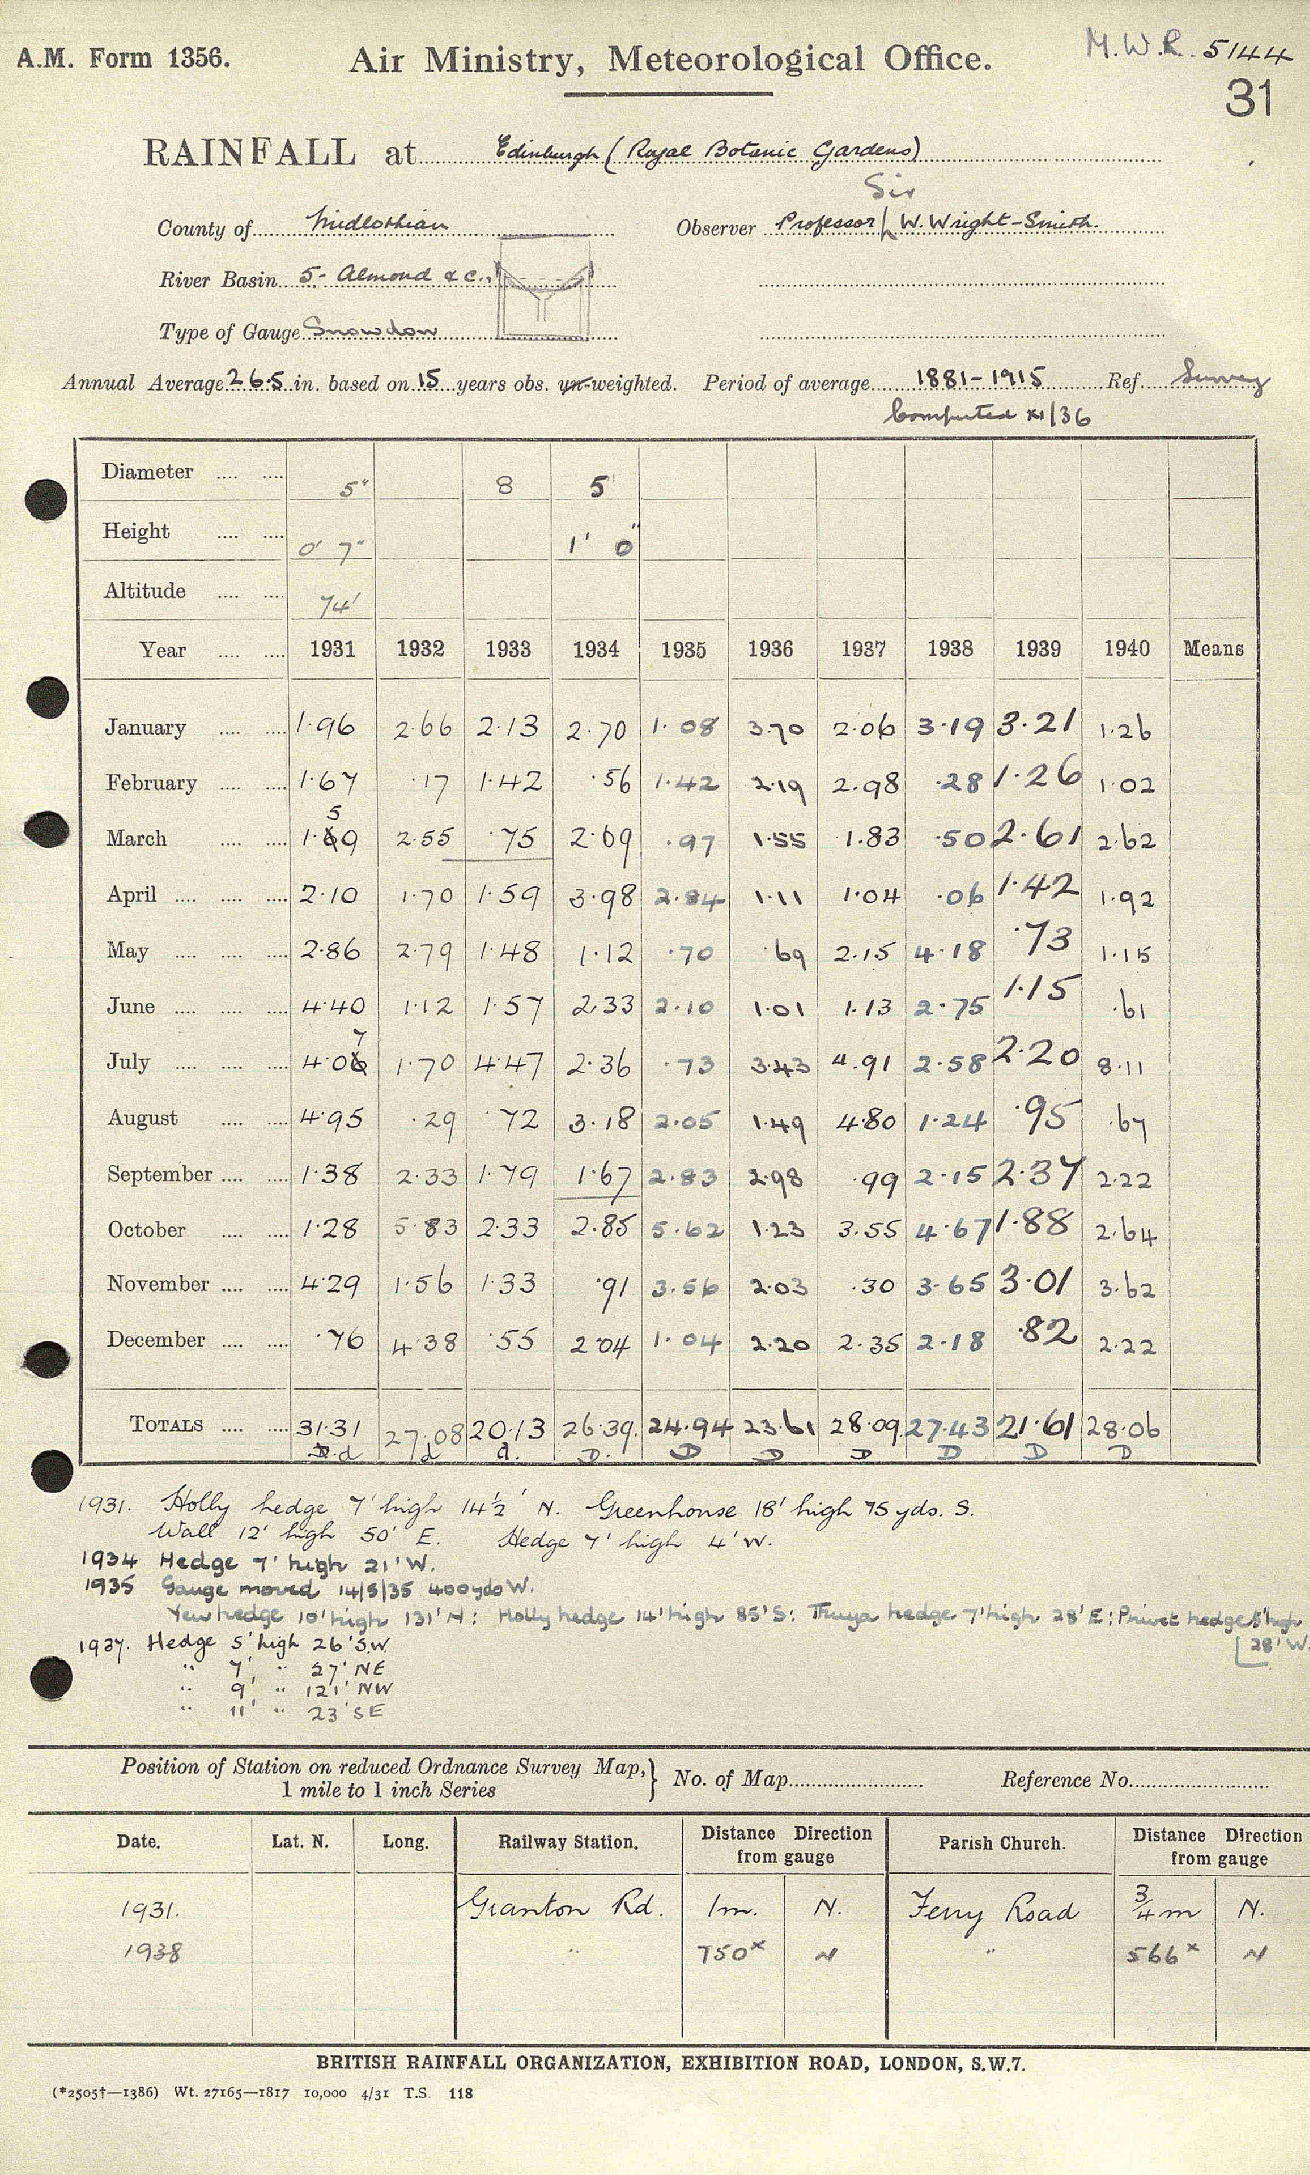 A.M. Form 1356. Air Ministry, Meteorological Office. M.W.R. 5144
31
RAINFALL at Edinburgh (Royal Botanic Gardens)
Sir
County of Midlothian Observer Professor W. Wright-Smith.
River Basin 5. Almond & c.,
Type of Gauge Snowdon
Annual Average 26.5 in. based on 15 years obs. un-weighted. Period of average 1881-1915 Ref. Survey
Computed XI/36
Diameter 5" 8 5
Height 0' 7" 1' 0"
Altitude 74'
Year 1931 1932 1933 1934 1935 1936 1937 1938 1939 1940 Means
January 1.96 2.66 2.13 2.70 1.08 3.70 2.06 3.19 3.21 1.26
February 1.67 .17 1.42 .56 1.42 2.19 2.98 .28 1.26 1.02
March 1.59 2.55 .75 2.69 .97 1.55 1.83 .50 2.61 2.62
April 2.10 1.70 1.59 3.98 2.84 1.11 1.04 .06 1.42 1.92
May 2.86 2.79 1.48 1.12 .70 .69 2.15 4.18 .73 1.15
June 4.40 1.12 1.57 2.33 2.10 1.01 1.13 2.75 1.15 .61
July 4.07 1.70 4.47 2.36 .73 3.43 4.91 2.58 2.20 8.11
August 4.95 .29 .72 3.18 2.05 1.49 4.80 1.24 .95 .67
September 1.38 2.33 1.79 1.67 2.83 2.98 .99 2.15 2.37 2.22
October 1.28 5.83 2.33 2.85 5.62 1.23 3.55 4.67 1.88 2.64
November 4.29 1.56 1.33 .91 3.56 2.03 .30 3.65 3.01 3.62
December .76 4.38 .55 2.04 1.04 2.20 2.35 2.18 .82 2.22
TOTALS 31.31 27.08 20.13 26.39 24.94 23.61 28.09 27.43 21.61 28.06
D. d d d. D. D D D D D D
1931. Holly hedge 7' high 14½' N. Greenhouse 18' high 75 yds. S.
Wall 12' high 50' E. Hedge 7' high 4' W.
1934 Hedge 7' high 21' W.
1935 Gauge moved 14/5/35 400 yds W.
Yew hedge 10' high 131' N: Holly hedge 14' high 85' S: Thuya hedge 7' high 28' E: Privet hedge 5' high
28' W.
1937. Hedge 5' high 26' S.W
" 7' " 27' NE
" 9' " 121' NW
" 11' " 23' SE
Position of Station on reduced Ordnance Survey Map,
1 mile to 1 inch Series } No. of Map Reference No.
Date. Lat. N. Long. Railway Station. Distance Direction from gauge Parish Church. Distance Direction from gauge
1931. Granton Rd. 1m. N. Ferry Road ¾m N.
1938 " 750ˣ N " 566ˣ N
BRITISH RAINFALL ORGANIZATION, EXHIBITION ROAD, LONDON, S.W.7.
(*2505†—1386) Wt. 27165—1817 10,000 4/31 T.S. 118